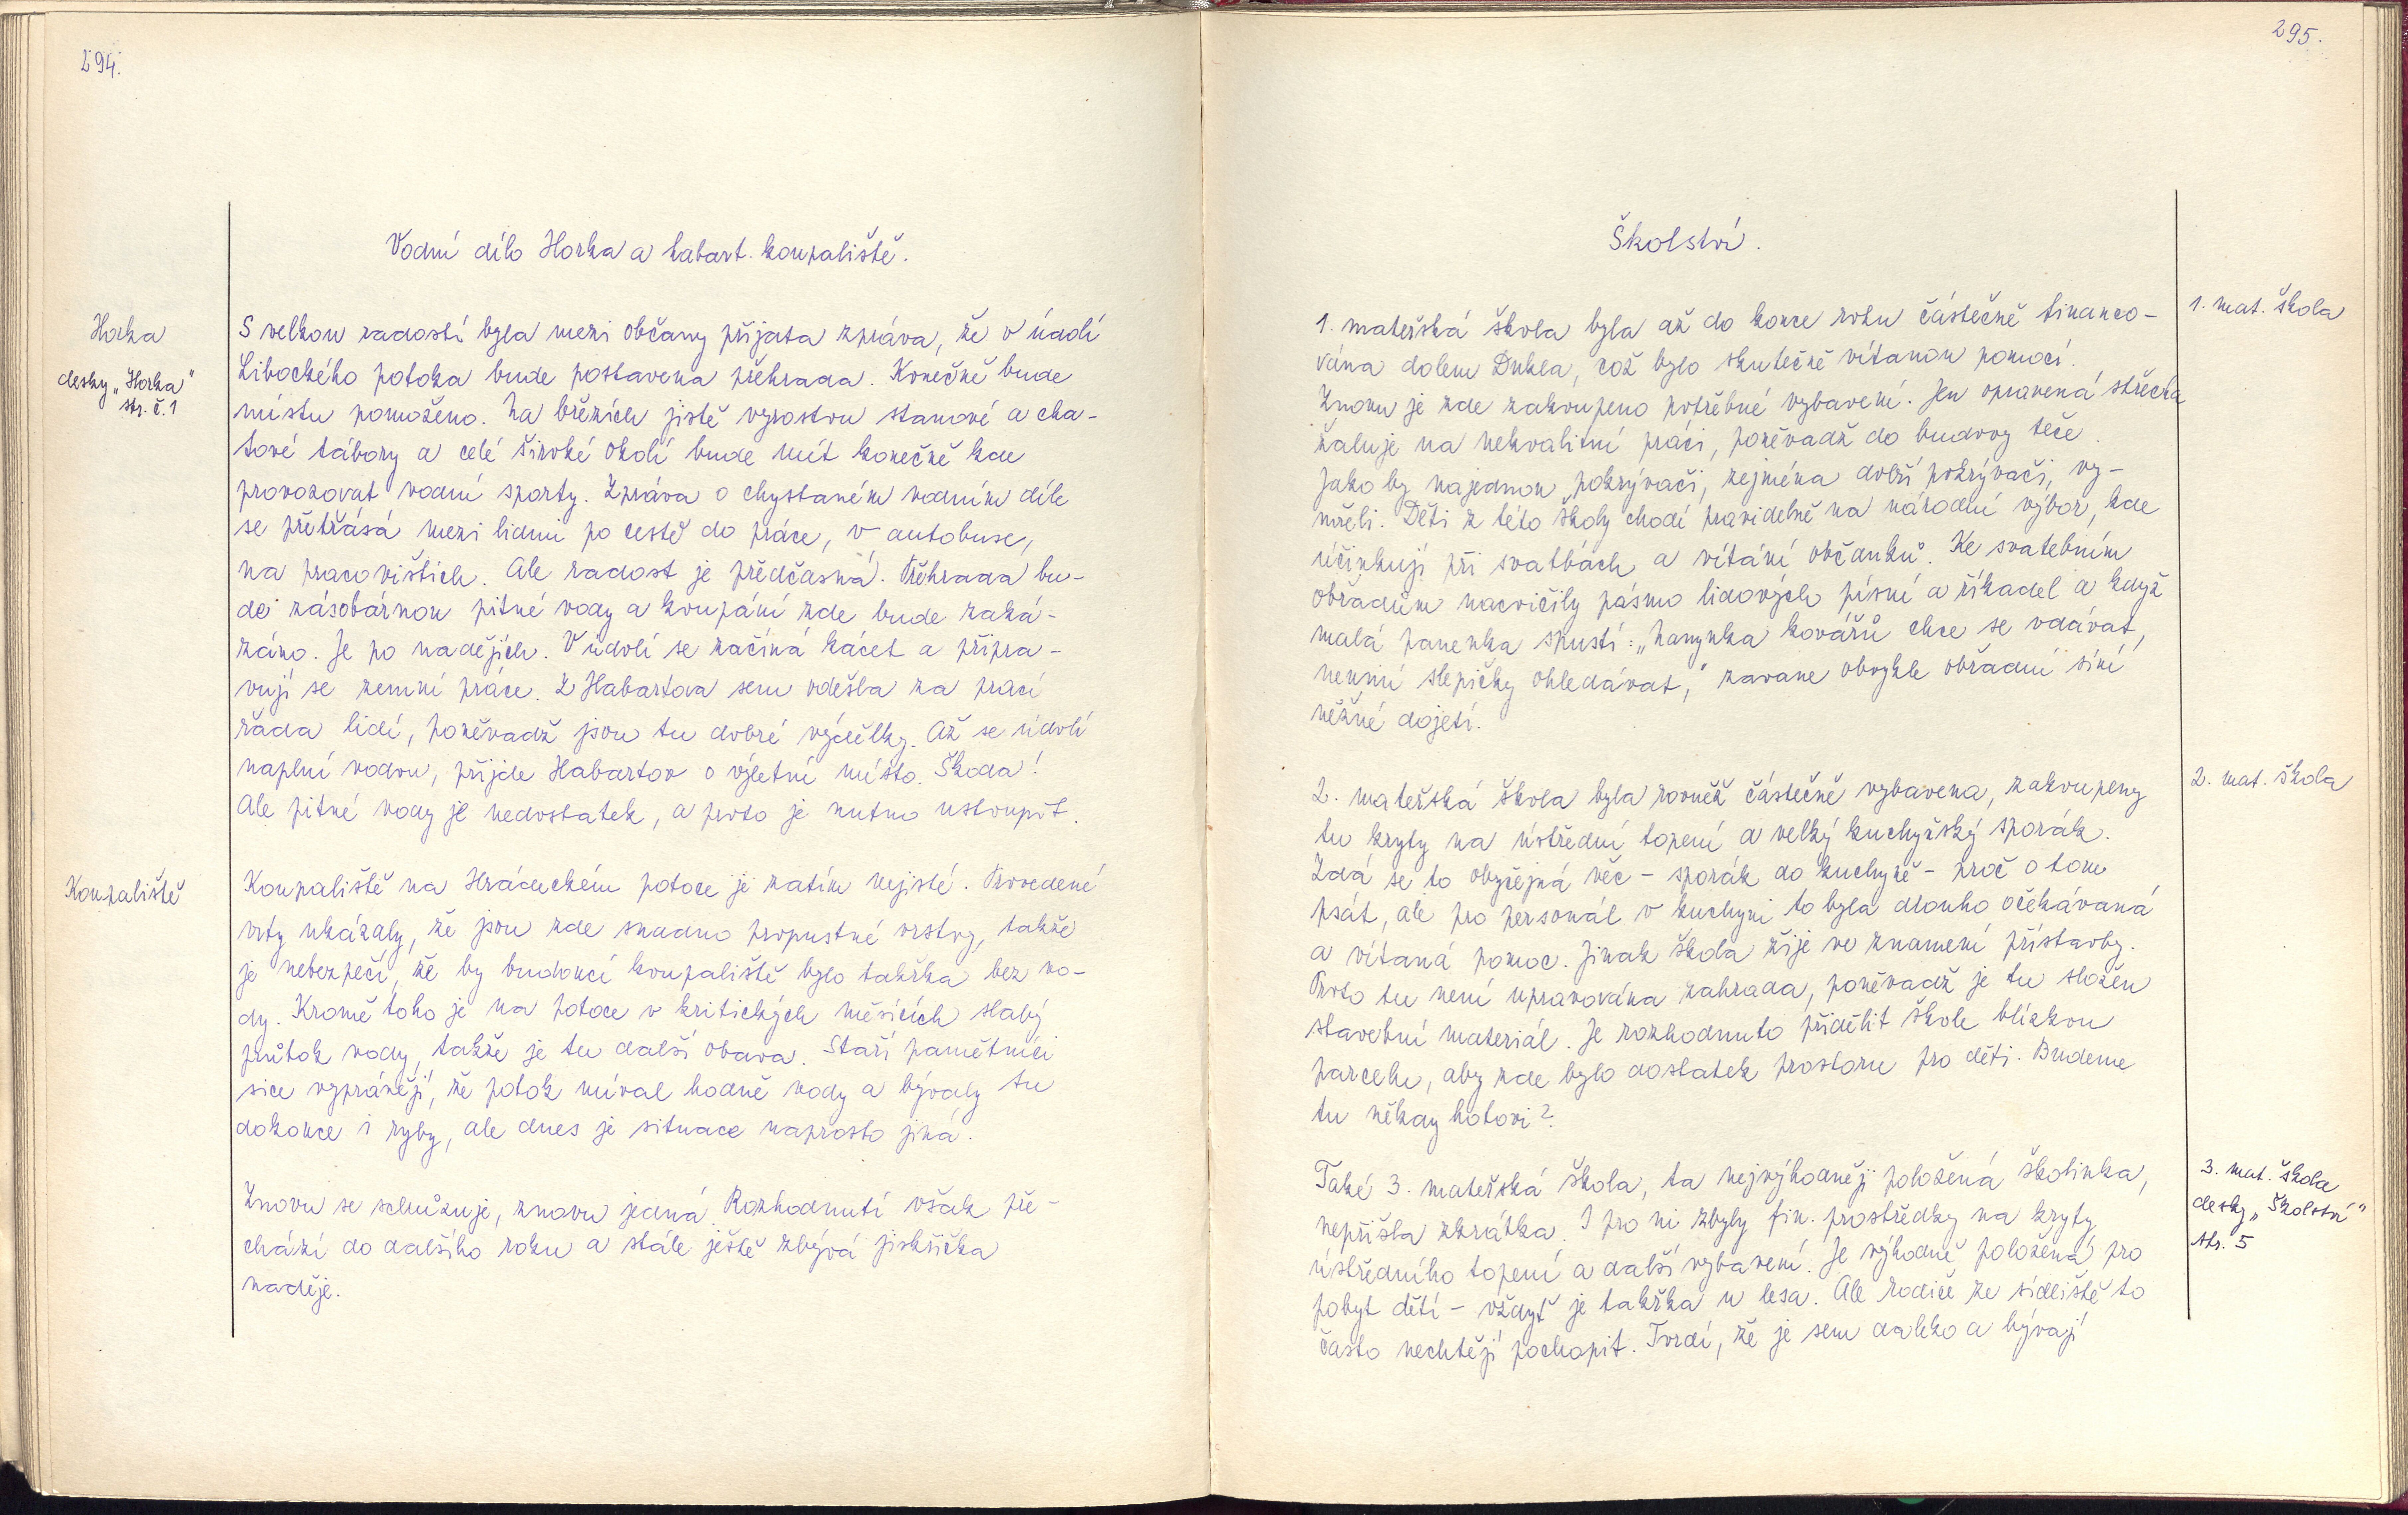 294.
Vodní dílo Horka a habart. koupaliště.
Horka
desky „Horka"
str. č. 1
S velkou radostí byla mezi občany přijata zpráva, že v údolí
Libockého potoka bude postavena přehrada. Konečně bude
místu pomoženo. Na březích jistě vyrostou stanové a cha-
tové tábory a celé široké okolí bude mít konečně kde
provozovat vodní sporty. Zpráva o chystaném vodním díle
se přetřásá mezi lidmi po cestě do práce, v autobuse,
na pracovištích. Ale radost je předčasná. Přehrada bu-
de zásobárnou pitné vody a koupání zde bude zaká-
záno. Je po nadějích. V údolí se začíná kácet a připra-
vují se zemní práce. Z Habartova sem odešla za prací
řada lidí, poněvadž jsou tu dobré výdělky. Až se údolí
naplní vodou, přijde Habartov o výletní místo. Škoda!
Ale pitné vody je nedostatek, a proto je nutno ustoupit.
Koupaliště
Koupaliště na Hrádeckém potoce je zatím nejisté. Provedené
vrty ukázaly, že jsou zde snadno propustné vrstvy, takže
je nebezpečí, že by budoucí koupaliště bylo takřka bez vo-
dy. Kromě toho je na potoce v kritických měsících slabý
průtok vody, takže je tu další obava. Staří pamětníci
sice vyprávějí, že potok míval hodně vody a bývaly tu
dokonce i ryby, ale dnes je situace naprosto jiná.
Znovu se schůzuje, znovu jedná. Rozhodnutí však pře-
chází do dalšího roku a stále ještě zbývá jiskřička
naděje.
295.
Školství.
1. mat. škola
1. mateřská škola byla až do konce roku částečně financo-
vána dolem Dukla, což bylo skutečně vítanou pomocí.
Znovu je zde zakoupeno potřebné vybavení. Jen opravená střecha
žaluje na nekvalitní práci, poněvadž do budovy teče.
Jako by najednou pokrývači, zejména dobří pokrývači, vy-
mřeli. Děti z této školy chodí pravidelně na národní výbor, kde
účinkují při svatbách a vítání občánků. Ke svatebním
obřadům nacvičily pásmo lidových písní a říkadel a když
malá panenka spustí: „Hanynka kovářů chce se vdávat,
neumí slepičky ohledávat," zavane obvykle obřadní síní
něžné dojetí.
2. mat. škola
2. mateřská škola byla rovněž částečně vybavena, zakoupeny
tu kryty na ústřední topení a velký kuchyňský sporák.
Zdá se to obyčejná věc - sporák do kuchyně - proč o tom
psát, ale pro personál v kuchyni to byla dlouho očekávaná
a vítaná pomoc. Jinak škola žije ve znamení přístavby.
Proto tu není upravována zahrada, poněvadž je tu složen
stavební materiál. Je rozhodnuto přidělit škole blízkou
parcelu, aby zde bylo dostatek prostoru pro děti. Budeme
tu někdy hotovi?
3. mat. škola
desky „Školství"
str. 5
Také 3. mateřská škola, ta nejvýhodněji položená školinka,
nepřišla zkrátka. I pro ni zbyly fin. prostředky na kryty
ústředního topení a další vybavení. Je výhodně položená pro
pobyt dětí - vždyť je takřka u lesa. Ale rodiče ze sídliště to
často nechtějí pochopit. Tvrdí, že je sem daleko a bývají